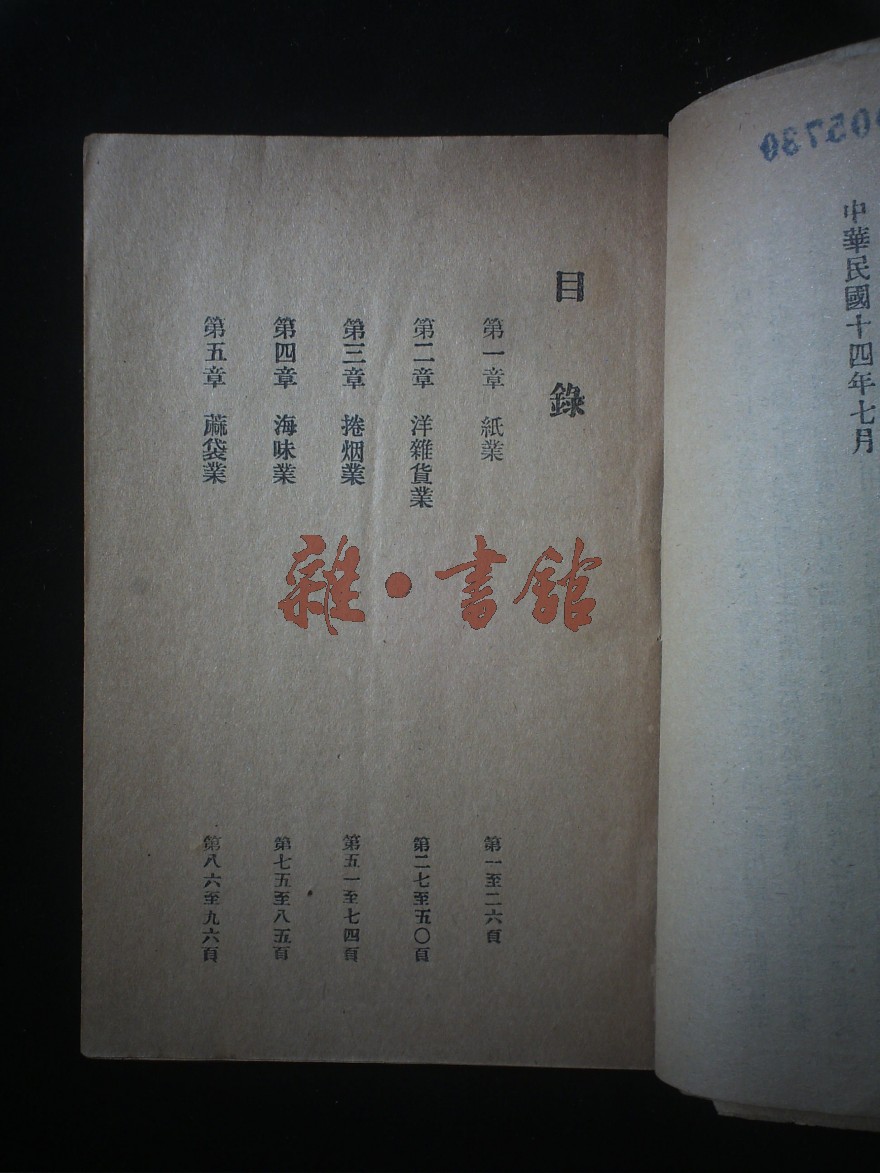 中華民國十四年七月
目錄
第一章 紙業 第一至二六頁
第二章 洋雜貨業 第二七至五〇頁
第三章 捲烟業 第五一至七四頁
第四章 海味業 第七五至八五頁
第五章 蔴袋業 第八六至九六頁
雜·書館